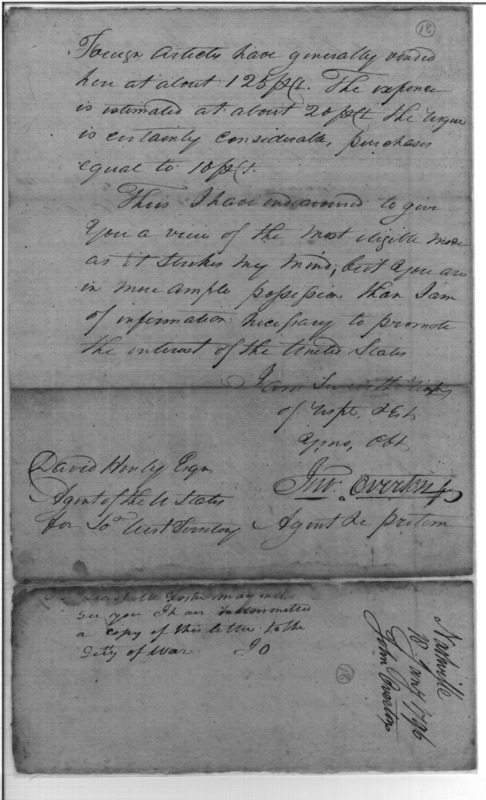 18
Foreign Articles have generally vended
here at about 125 p Ct. The expence
is estimated at about 20 p Ct the
is certainly considerable, purchases
equal to 10 p Ct.
Thus I have endeavoured to give
you a view of the most eligible mode
as it strikes my mind; but as you are
in more ample possession than I am
of information necessary to promote
the interest of the United States
I am Sir with
of Respt. & Est.
Obt.
David Henley Esqr
Agent of the U States
for So. West Territory
Jno. Overton
Agent pro tem
Foster may not
see you I have transmitted
a copy of this letter to the
Secty of War JO
18
Nashville
10 Jany 1796
John Overton